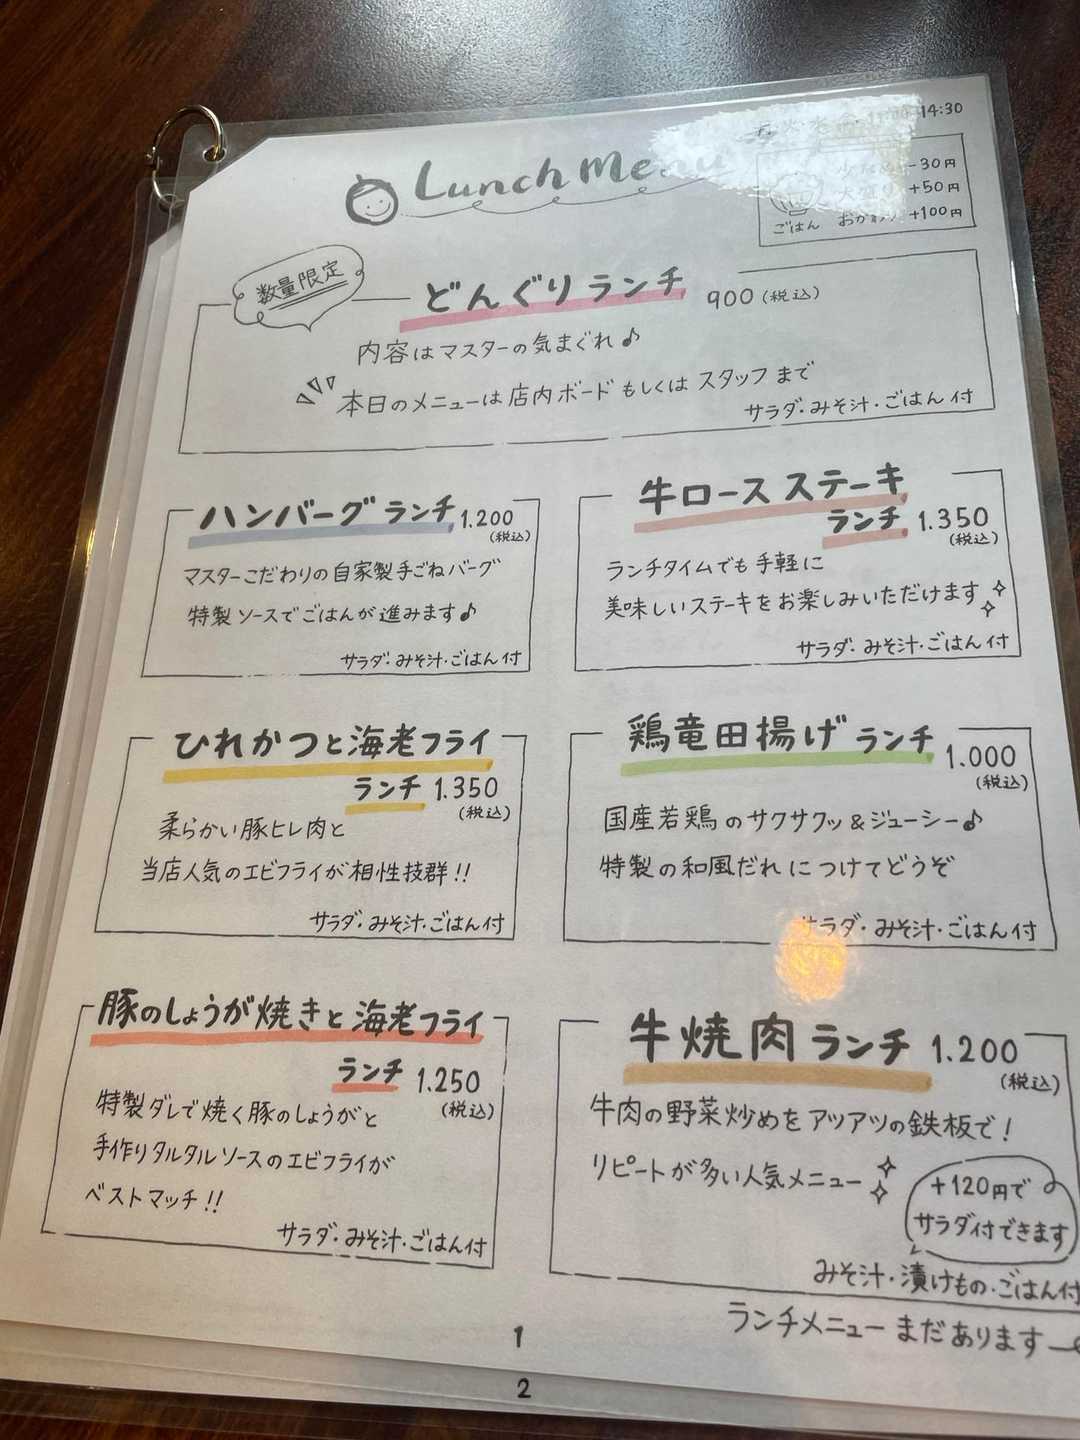 火水金 11:00-14:30
Lunch Menu
少なめ -30円
大盛り +50円
ごはん おかわり +100円
数量限定
どんぐりランチ 900(税込)
内容はマスターの気まぐれ♪
本日のメニューは店内ボードもしくはスタッフまで
サラダ・みそ汁・ごはん付
ハンバーグランチ 1.200
(税込)
マスターこだわりの自家製手ごねバーグ
特製ソースでごはんが進みます♪
サラダ・みそ汁・ごはん付
牛ロースステーキ
ランチ 1.350
(税込)
ランチタイムでも手軽に
美味しいステーキをお楽しみいただけます
サラダ・みそ汁・ごはん付
ひれかつと海老フライ
ランチ 1.350
(税込)
柔らかい豚ヒレ肉と
当店人気のエビフライが相性抜群!!
サラダ・みそ汁・ごはん付
鶏竜田揚げランチ 1.000
(税込)
国産若鶏のサクサクッ&ジューシー♪
特製の和風だれにつけてどうぞ
サラダ・みそ汁・ごはん付
豚のしょうが焼きと海老フライ
ランチ 1.250
(税込)
特製ダレで焼く豚のしょうがと
手作りタルタルソースのエビフライが
ベストマッチ!!
サラダ・みそ汁・ごはん付
牛焼肉ランチ 1.200
(税込)
牛肉の野菜炒めをアツアツの鉄板で!
リピートが多い人気メニュー
+120円で
サラダ付できます
みそ汁・漬けもの・ごはん付
ランチメニューまだあります
1
2